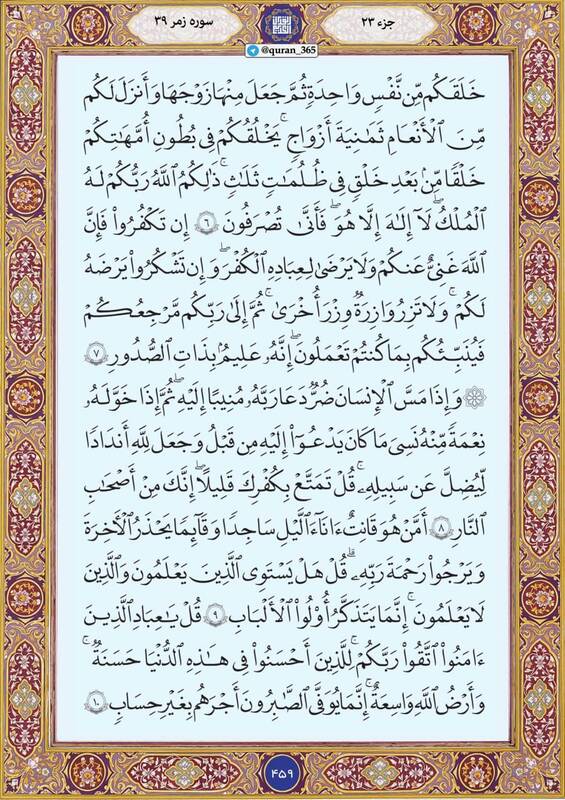 جزء ۲۳
سوره زمر ۳۹
@quran_365
خَلَقَكُم مِّن نَّفْسٍ وَاحِدَةٍ ثُمَّ جَعَلَ مِنْهَا زَوْجَهَا وَأَنزَلَ لَكُم
مِّنَ ٱلْأَنْعَامِ ثَمَانِيَةَ أَزْوَاجٍ ۚ يَخْلُقُكُمْ فِى بُطُونِ أُمَّهَاتِكُمْ
خَلْقًا مِّنۢ بَعْدِ خَلْقٍ فِى ظُلُمَاتٍ ثَلَاثٍ ۚ ذَٰلِكُمُ ٱللَّهُ رَبُّكُمْ لَهُ
ٱلْمُلْكُ ۖ لَآ إِلَٰهَ إِلَّا هُوَ ۖ فَأَنَّىٰ تُصْرَفُونَ ۶ إِن تَكْفُرُوا۟ فَإِنَّ
ٱللَّهَ غَنِىٌّ عَنكُمْ ۖ وَلَا يَرْضَىٰ لِعِبَادِهِ ٱلْكُفْرَ ۖ وَإِن تَشْكُرُوا۟ يَرْضَهُ
لَكُمْ ۗ وَلَا تَزِرُ وَازِرَةٌ وِزْرَ أُخْرَىٰ ۗ ثُمَّ إِلَىٰ رَبِّكُم مَّرْجِعُكُمْ
فَيُنَبِّئُكُم بِمَا كُنتُمْ تَعْمَلُونَ ۚ إِنَّهُۥ عَلِيمٌۢ بِذَاتِ ٱلصُّدُورِ ۷
۞ وَإِذَا مَسَّ ٱلْإِنسَانَ ضُرٌّ دَعَا رَبَّهُۥ مُنِيبًا إِلَيْهِ ثُمَّ إِذَا خَوَّلَهُۥ
نِعْمَةً مِّنْهُ نَسِىَ مَا كَانَ يَدْعُوٓا۟ إِلَيْهِ مِن قَبْلُ وَجَعَلَ لِلَّهِ أَندَادًا
لِّيُضِلَّ عَن سَبِيلِهِۦ ۚ قُلْ تَمَتَّعْ بِكُفْرِكَ قَلِيلًا ۖ إِنَّكَ مِنْ أَصْحَابِ
ٱلنَّارِ ۸ أَمَّنْ هُوَ قَانِتٌ ءَانَآءَ ٱلَّيْلِ سَاجِدًا وَقَآئِمًا يَحْذَرُ ٱلْـَٔاخِرَةَ
وَيَرْجُوا۟ رَحْمَةَ رَبِّهِۦ ۗ قُلْ هَلْ يَسْتَوِى ٱلَّذِينَ يَعْلَمُونَ وَٱلَّذِينَ
لَا يَعْلَمُونَ ۗ إِنَّمَا يَتَذَكَّرُ أُو۟لُوا۟ ٱلْأَلْبَابِ ۹ قُلْ يَاعِبَادِ ٱلَّذِينَ
ءَامَنُوا۟ ٱتَّقُوا۟ رَبَّكُمْ ۚ لِلَّذِينَ أَحْسَنُوا۟ فِى هَاذِهِ ٱلدُّنْيَا حَسَنَةٌ ۗ
وَأَرْضُ ٱللَّهِ وَاسِعَةٌ ۗ إِنَّمَا يُوَفَّى ٱلصَّابِرُونَ أَجْرَهُم بِغَيْرِ حِسَابٍ ۱۰
۴۵۹